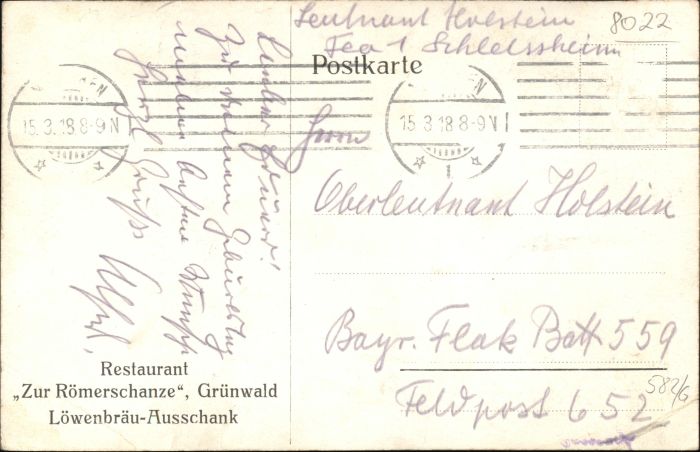 Leutnant Holstein
8022
Fea 1 Schleissheim
Postkarte
MÜNCHEN
15.3.18 8-9 N
15.3.18 8-9 N
1
Herrn
Oberleutnant Holstein
Bayr. Flak Batt 559
Feldpost 652
582/6
Lieber
Zu Deinem Geburtstag
meinen besten
Herzl. Grüße
Restaurant
„Zur Römerschanze“, Grünwald
Löwenbräu-Ausschank